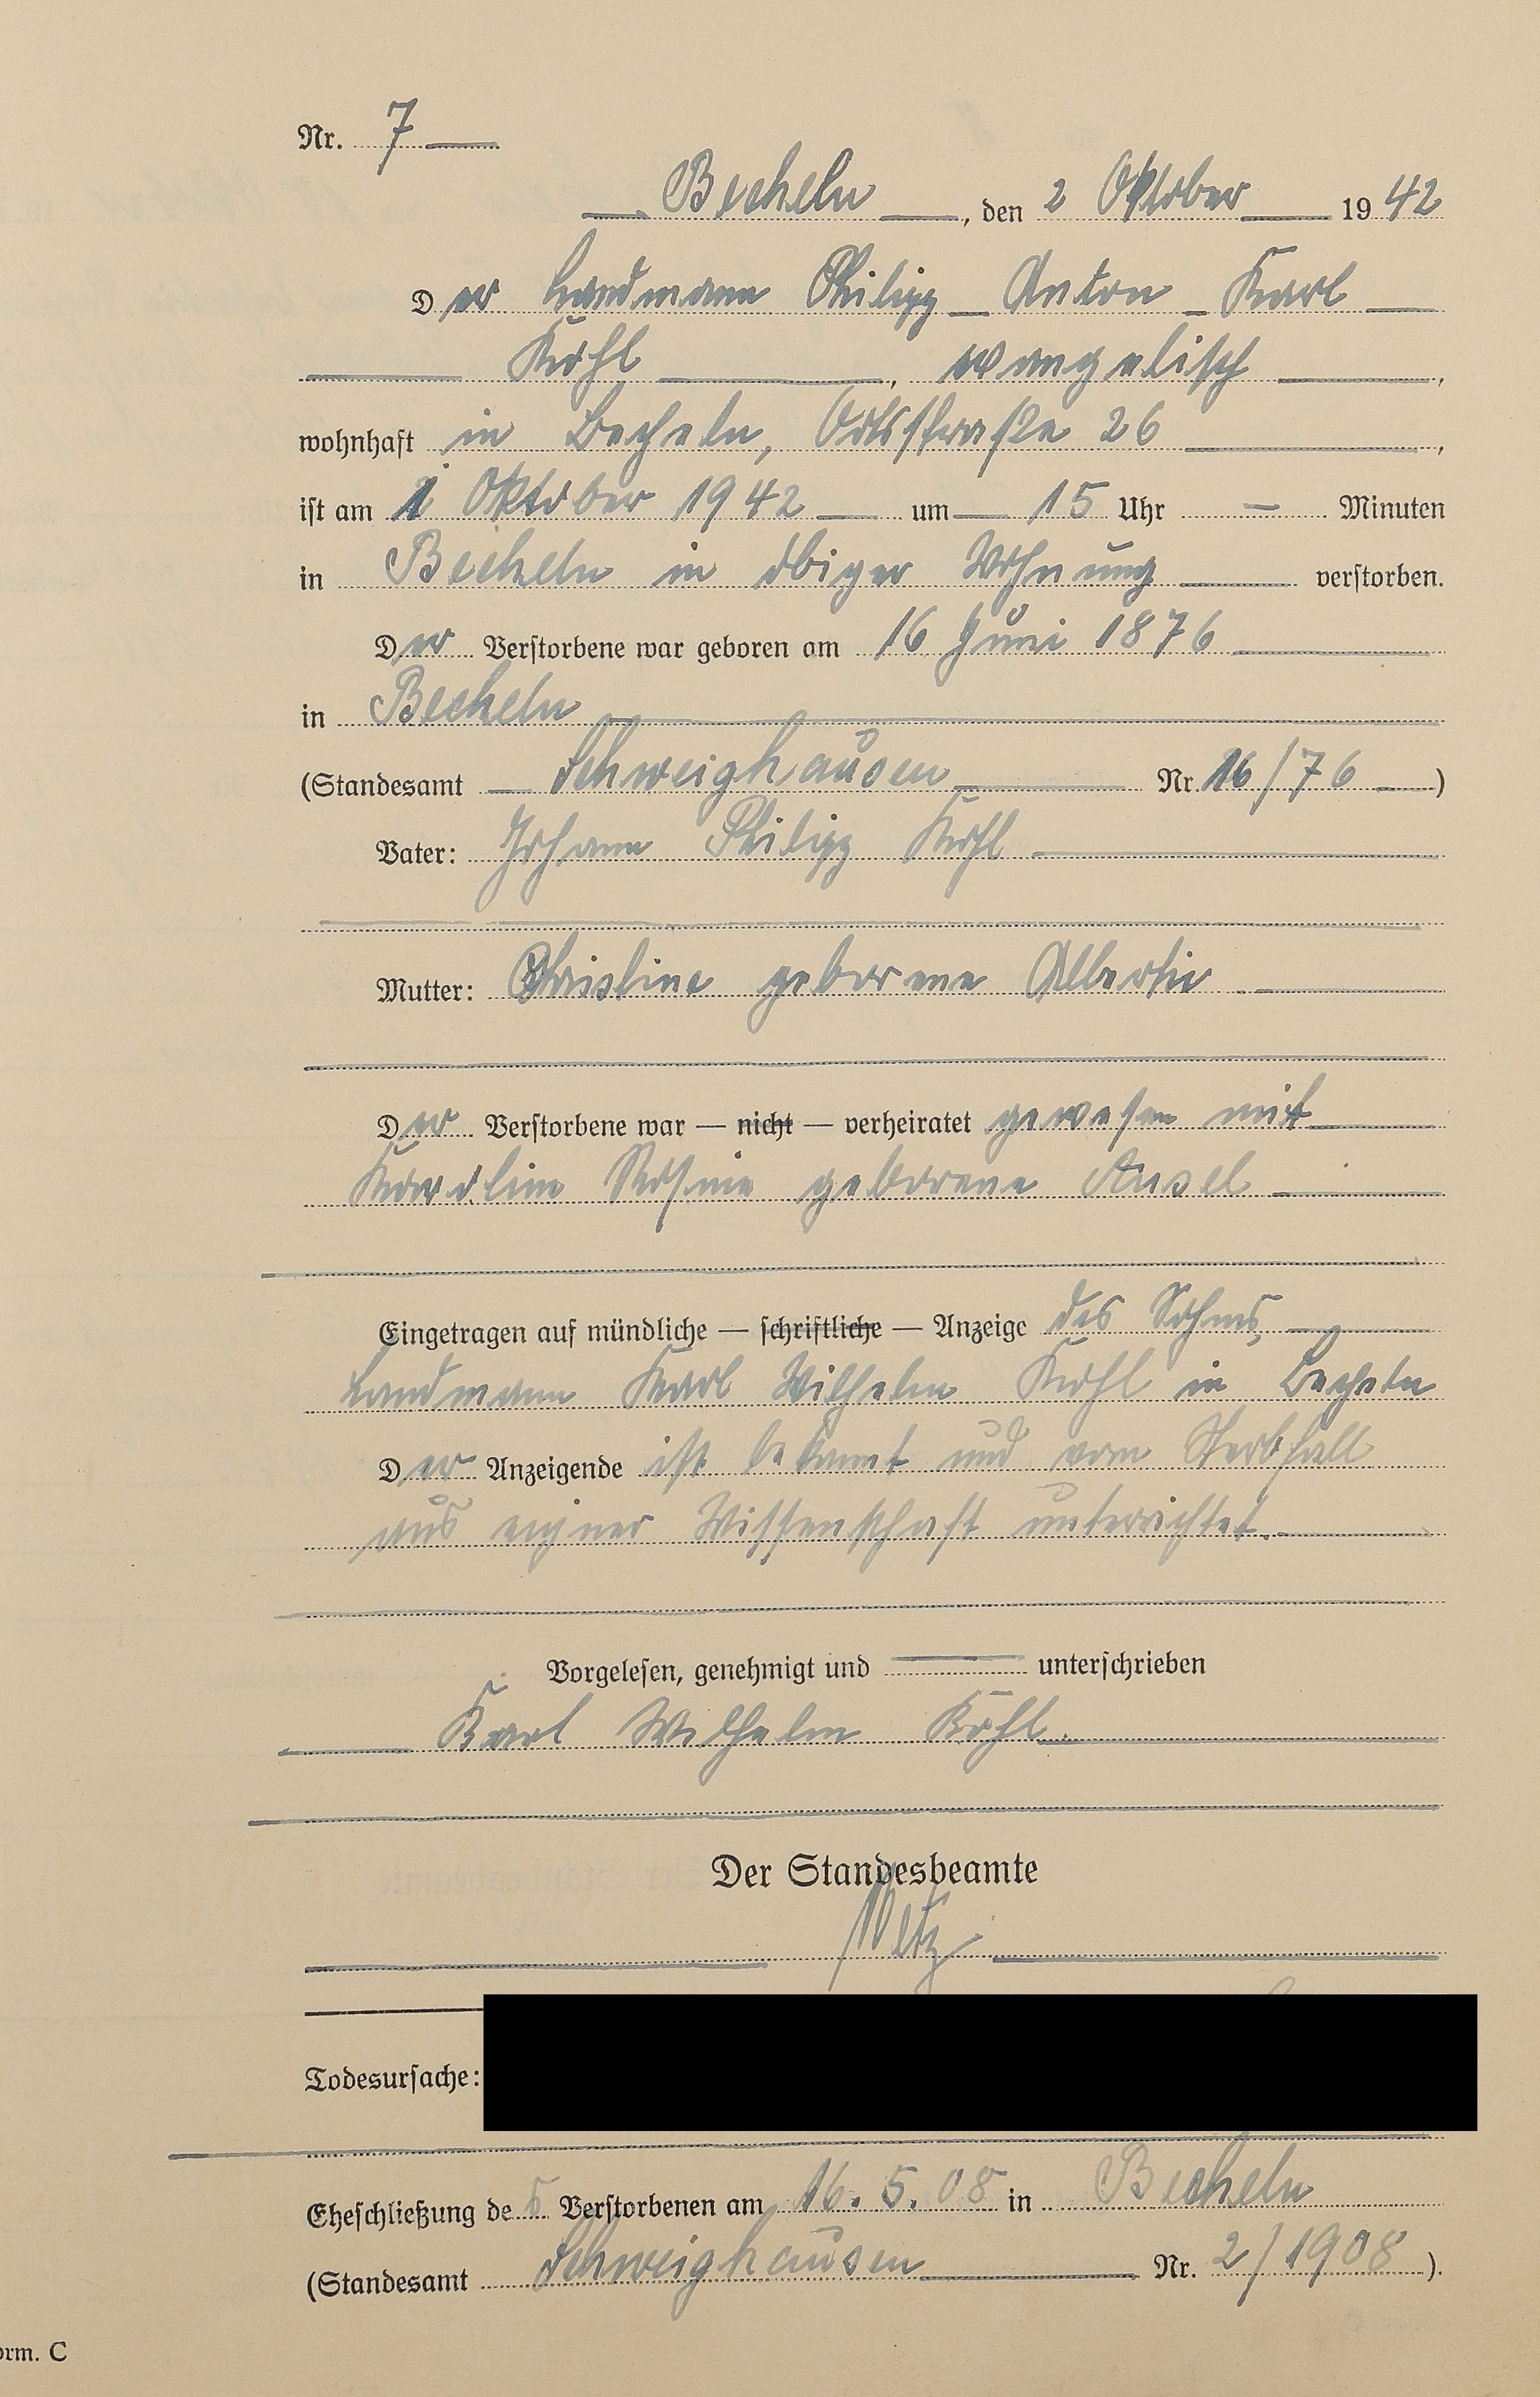 Nr. 7
Becheln, den 2 Oktober 1942
Der Landmann Philipp Anton Karl
Kohl, evangelisch,
wohnhaft in Becheln, Ortsstraße 26,
ist am 1 Oktober 1942 um 15 Uhr — Minuten
in Becheln in obiger Wohnung verstorben.
Der Verstorbene war geboren am 16 Juni 1876
in Becheln
(Standesamt Schweighausen Nr. 16/76)
Vater: Johann Philipp Kohl
Mutter: Christine geborene
Der Verstorbene war — nicht — verheiratet gewesen mit
Karoline geborene
Eingetragen auf mündliche — schriftliche — Anzeige des Sohnes,
Landmann Karl Wilhelm Kohl in Becheln
Der Anzeigende ist bekannt und vom Sterbfall
aus eigner Wissenschaft unterrichtet.
Vorgelesen, genehmigt und unterschrieben
Karl Wilhelm Kohl.
Der Standesbeamte
Metz
Todesursache:
Eheschließung des Verstorbenen am 16. 5. 08 in Becheln
(Standesamt Schweighausen Nr. 2/1908).
orm. C